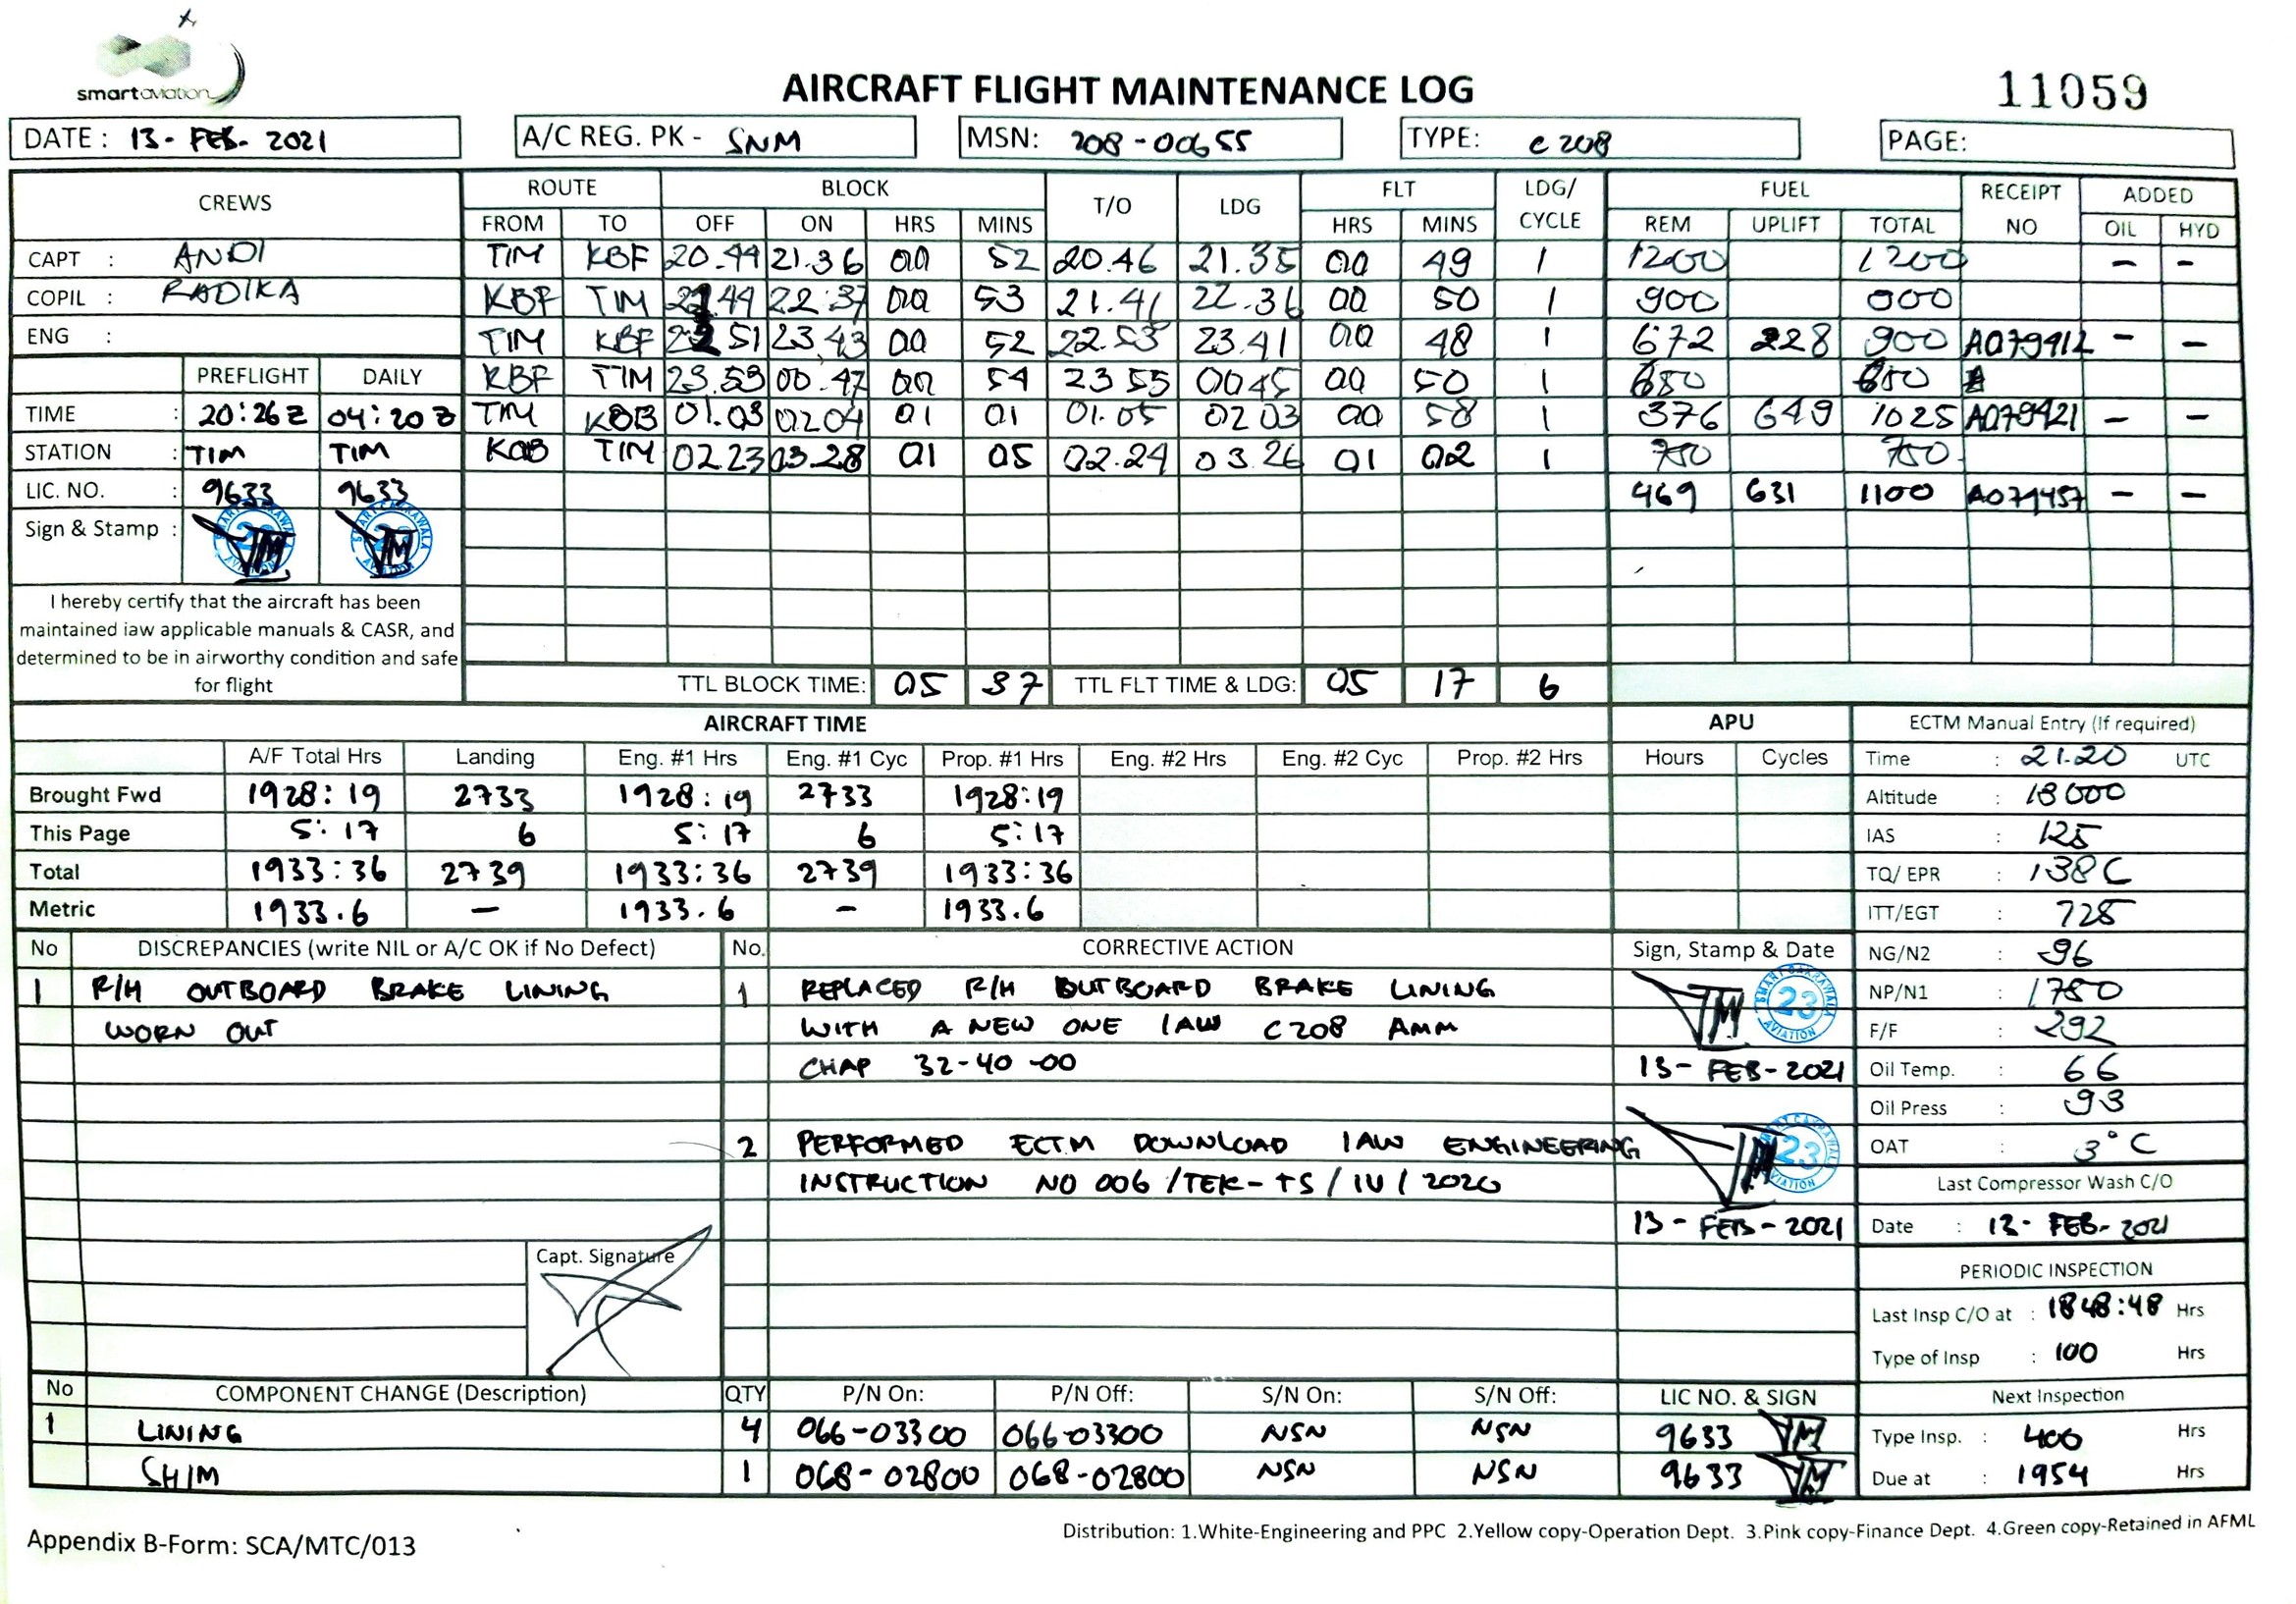 smartaviation
AIRCRAFT FLIGHT MAINTENANCE LOG
11059
DATE : 13- FEB- 2021
A/C REG. PK - SNM
MSN: 208-00655
TYPE: C208
PAGE:
CREWS ROUTE BLOCK T/O LDG FLT LDG/ CYCLE FUEL RECEIPT NO ADDED
FROM TO OFF ON HRS MINS HRS MINS REM UPLIFT TOTAL OIL HYD
CAPT : ANDI TIM KBF 20.44 21.36 00 52 20.46 21.35 00 49 1 1200 1200 - -
COPIL : RADIKA KBF TIM 2144 22.37 00 53 21.41 22.36 00 50 1 900 900
ENG : TIM KBF 2251 23.43 00 52 22.53 23.41 00 48 1 672 228 900 A079412 - -
PREFLIGHT DAILY KBF TIM 23.53 00.47 00 54 23 55 0045 00 50 1 680 680
TIME : 20:26Z 04:20Z TIM KOB 01.03 0204 01 01 01.05 02 03 00 58 1 376 649 1025 A079421 - -
STATION : TIM TIM KOB TIM 02.23 03.28 01 05 02.24 03.26 01 02 1 750 750
LIC. NO. : 9633 9633 469 631 1100 A079457 - -
Sign & Stamp :
I hereby certify that the aircraft has been
maintained iaw applicable manuals & CASR, and
determined to be in airworthy condition and safe
for flight
TTL BLOCK TIME: 05 37 TTL FLT TIME & LDG: 05 17 6
AIRCRAFT TIME APU
A/F Total Hrs Landing Eng. #1 Hrs Eng. #1 Cyc Prop. #1 Hrs Eng. #2 Hrs Eng. #2 Cyc Prop. #2 Hrs Hours Cycles
Brought Fwd 1928:19 2733 1928:19 2733 1928:19
This Page 5:17 6 5:17 6 5:17
Total 1933:36 2739 1933:36 2739 1933:36
Metric 1933.6 - 1933.6 - 1933.6
ECTM Manual Entry (If required)
Time : 21.20 UTC
Altitude : 13000
IAS : 125
TQ/ EPR : 138C
ITT/EGT : 725
NG/N2 : 96
NP/N1 : 1750
F/F : 292
Oil Temp. : 66
Oil Press : 93
OAT : 3°C
Last Compressor Wash C/O
Date : 12- FEB- 2021
PERIODIC INSPECTION
Last Insp C/O at : 1848:48 Hrs
Type of Insp : 100 Hrs
Next Inspection
Type Insp. : 400 Hrs
Due at : 1954 Hrs
No DISCREPANCIES (write NIL or A/C OK if No Defect) No. CORRECTIVE ACTION Sign, Stamp & Date
1 R/H OUTBOARD BRAKE LINING 1 REPLACED R/H OUTBOARD BRAKE LINING
WORN OUT WITH A NEW ONE IAW C208 AMM
CHAP 32-40-00 13- FEB-2021
2 PERFORMED ECTM DOWNLOAD IAW ENGINEERING
INSTRUCTION NO 006 /TEK-TS / IV / 2020
13- FEB-2021
SMART CAKRAWALA AVIATION 23
Capt. Signature
No COMPONENT CHANGE (Description) QTY P/N On: P/N Off: S/N On: S/N Off: LIC NO. & SIGN
1 LINING 4 066-03300 066-03300 NSN NSN 9633
SHIM 1 068-02800 068-02800 NSN NSN 9633
Appendix B-Form: SCA/MTC/013
Distribution: 1.White-Engineering and PPC 2.Yellow copy-Operation Dept. 3.Pink copy-Finance Dept. 4.Green copy-Retained in AFML